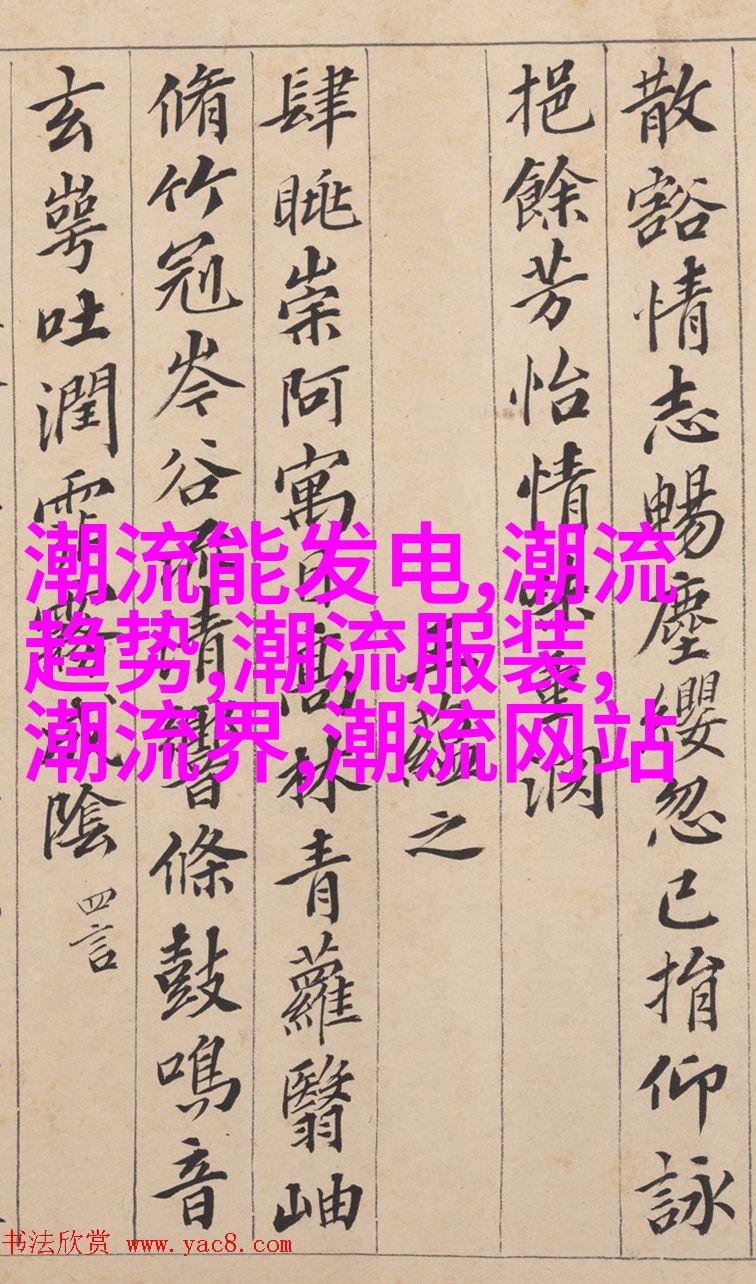 散豁情志暢塵纓忽已捐仰詠
挹餘芳怡情味重淵
王蘊之
肆眺崇阿寓目髙林青蘿翳岫
脩竹冠岑谷流清響條鼓鳴音
玄崿吐潤霏霧成陰 四言
潮流能发电,潮流
趋势,潮流服装,
潮流界,潮流网站
书法欣赏 www.yac8.com